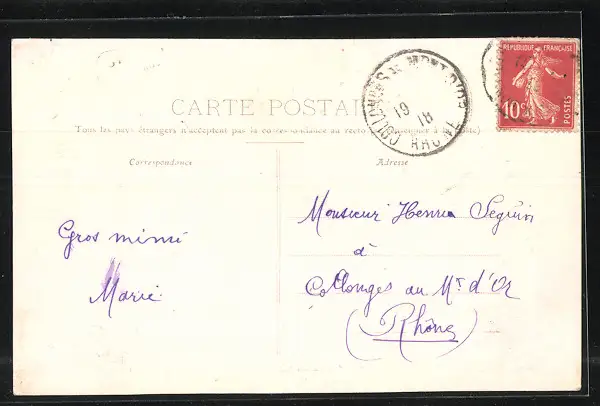 CARTE POSTALE
Tous les pays étrangers n'acceptent pas la correspondance au recto (se renseigner à la Poste)
Correspondance
Adresse
Gros mimi
Marie
Monsieur Henri Seguin
à
Collonges au Mt d'Or
(Rhône)
COLLONGES AU MONT D'OR
19
18
RHONE
REPUBLIQUE FRANÇAISE
10c
POSTES